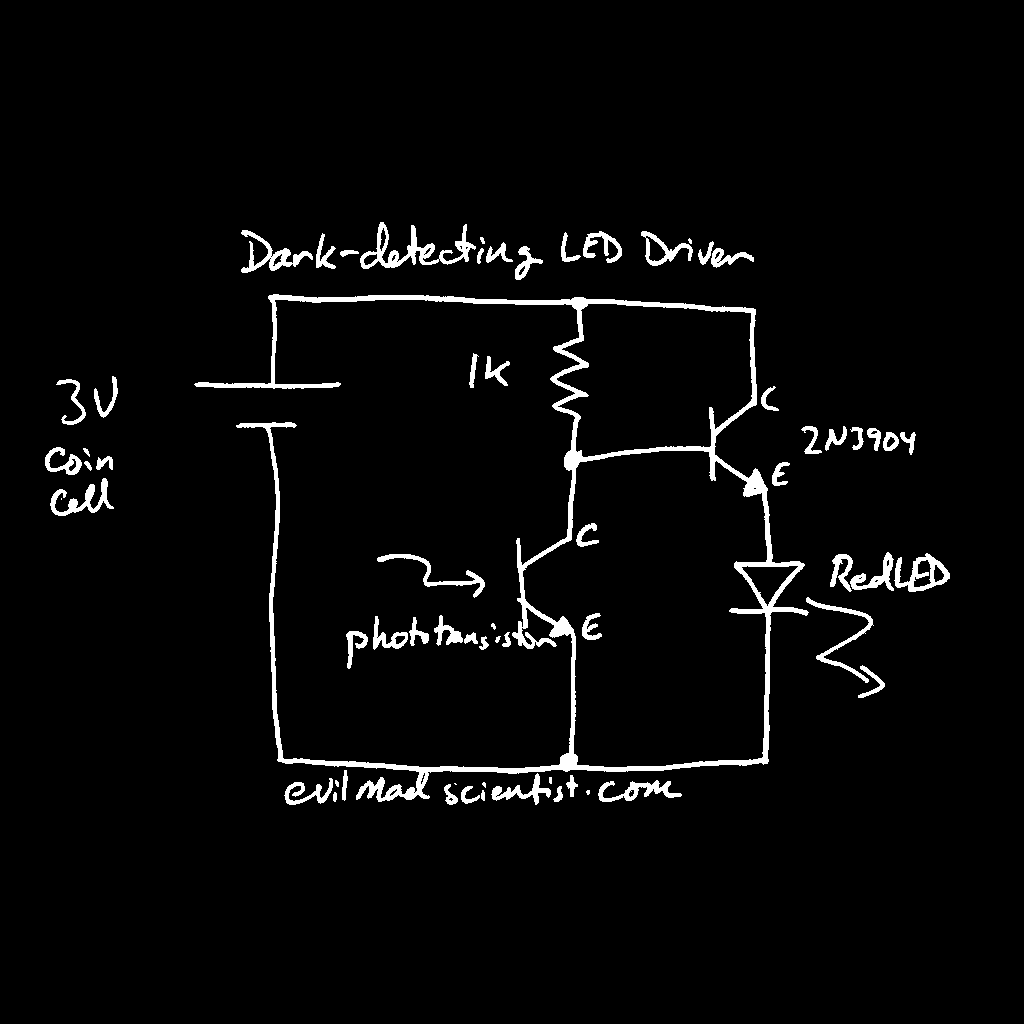 Dark-detecting LED Driver
3V
coin
cell
1K
C
2N3904
E
C
phototransistor
E
Red LED
evilmadscientist.com